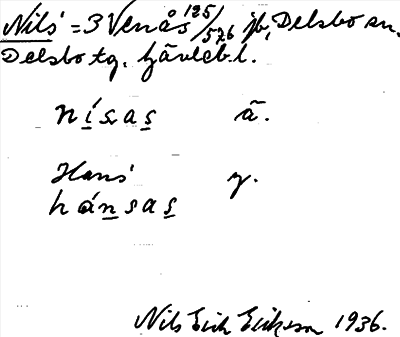 Nils = 3 Venås 125/576 jb, Delsbo sn.
Delsbo tg. Gävleb.l.
nísas ä.
Hans' y.
hánsas
Nils Erik Erikson 1936.